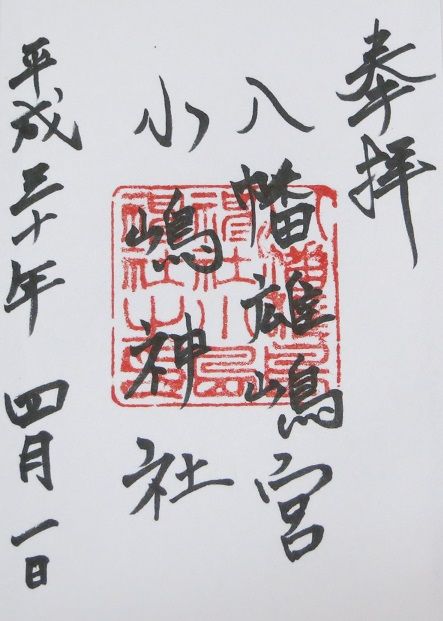 奉拝
八幡雄嶋宮
小嶋神社
平成三十年 四月一日